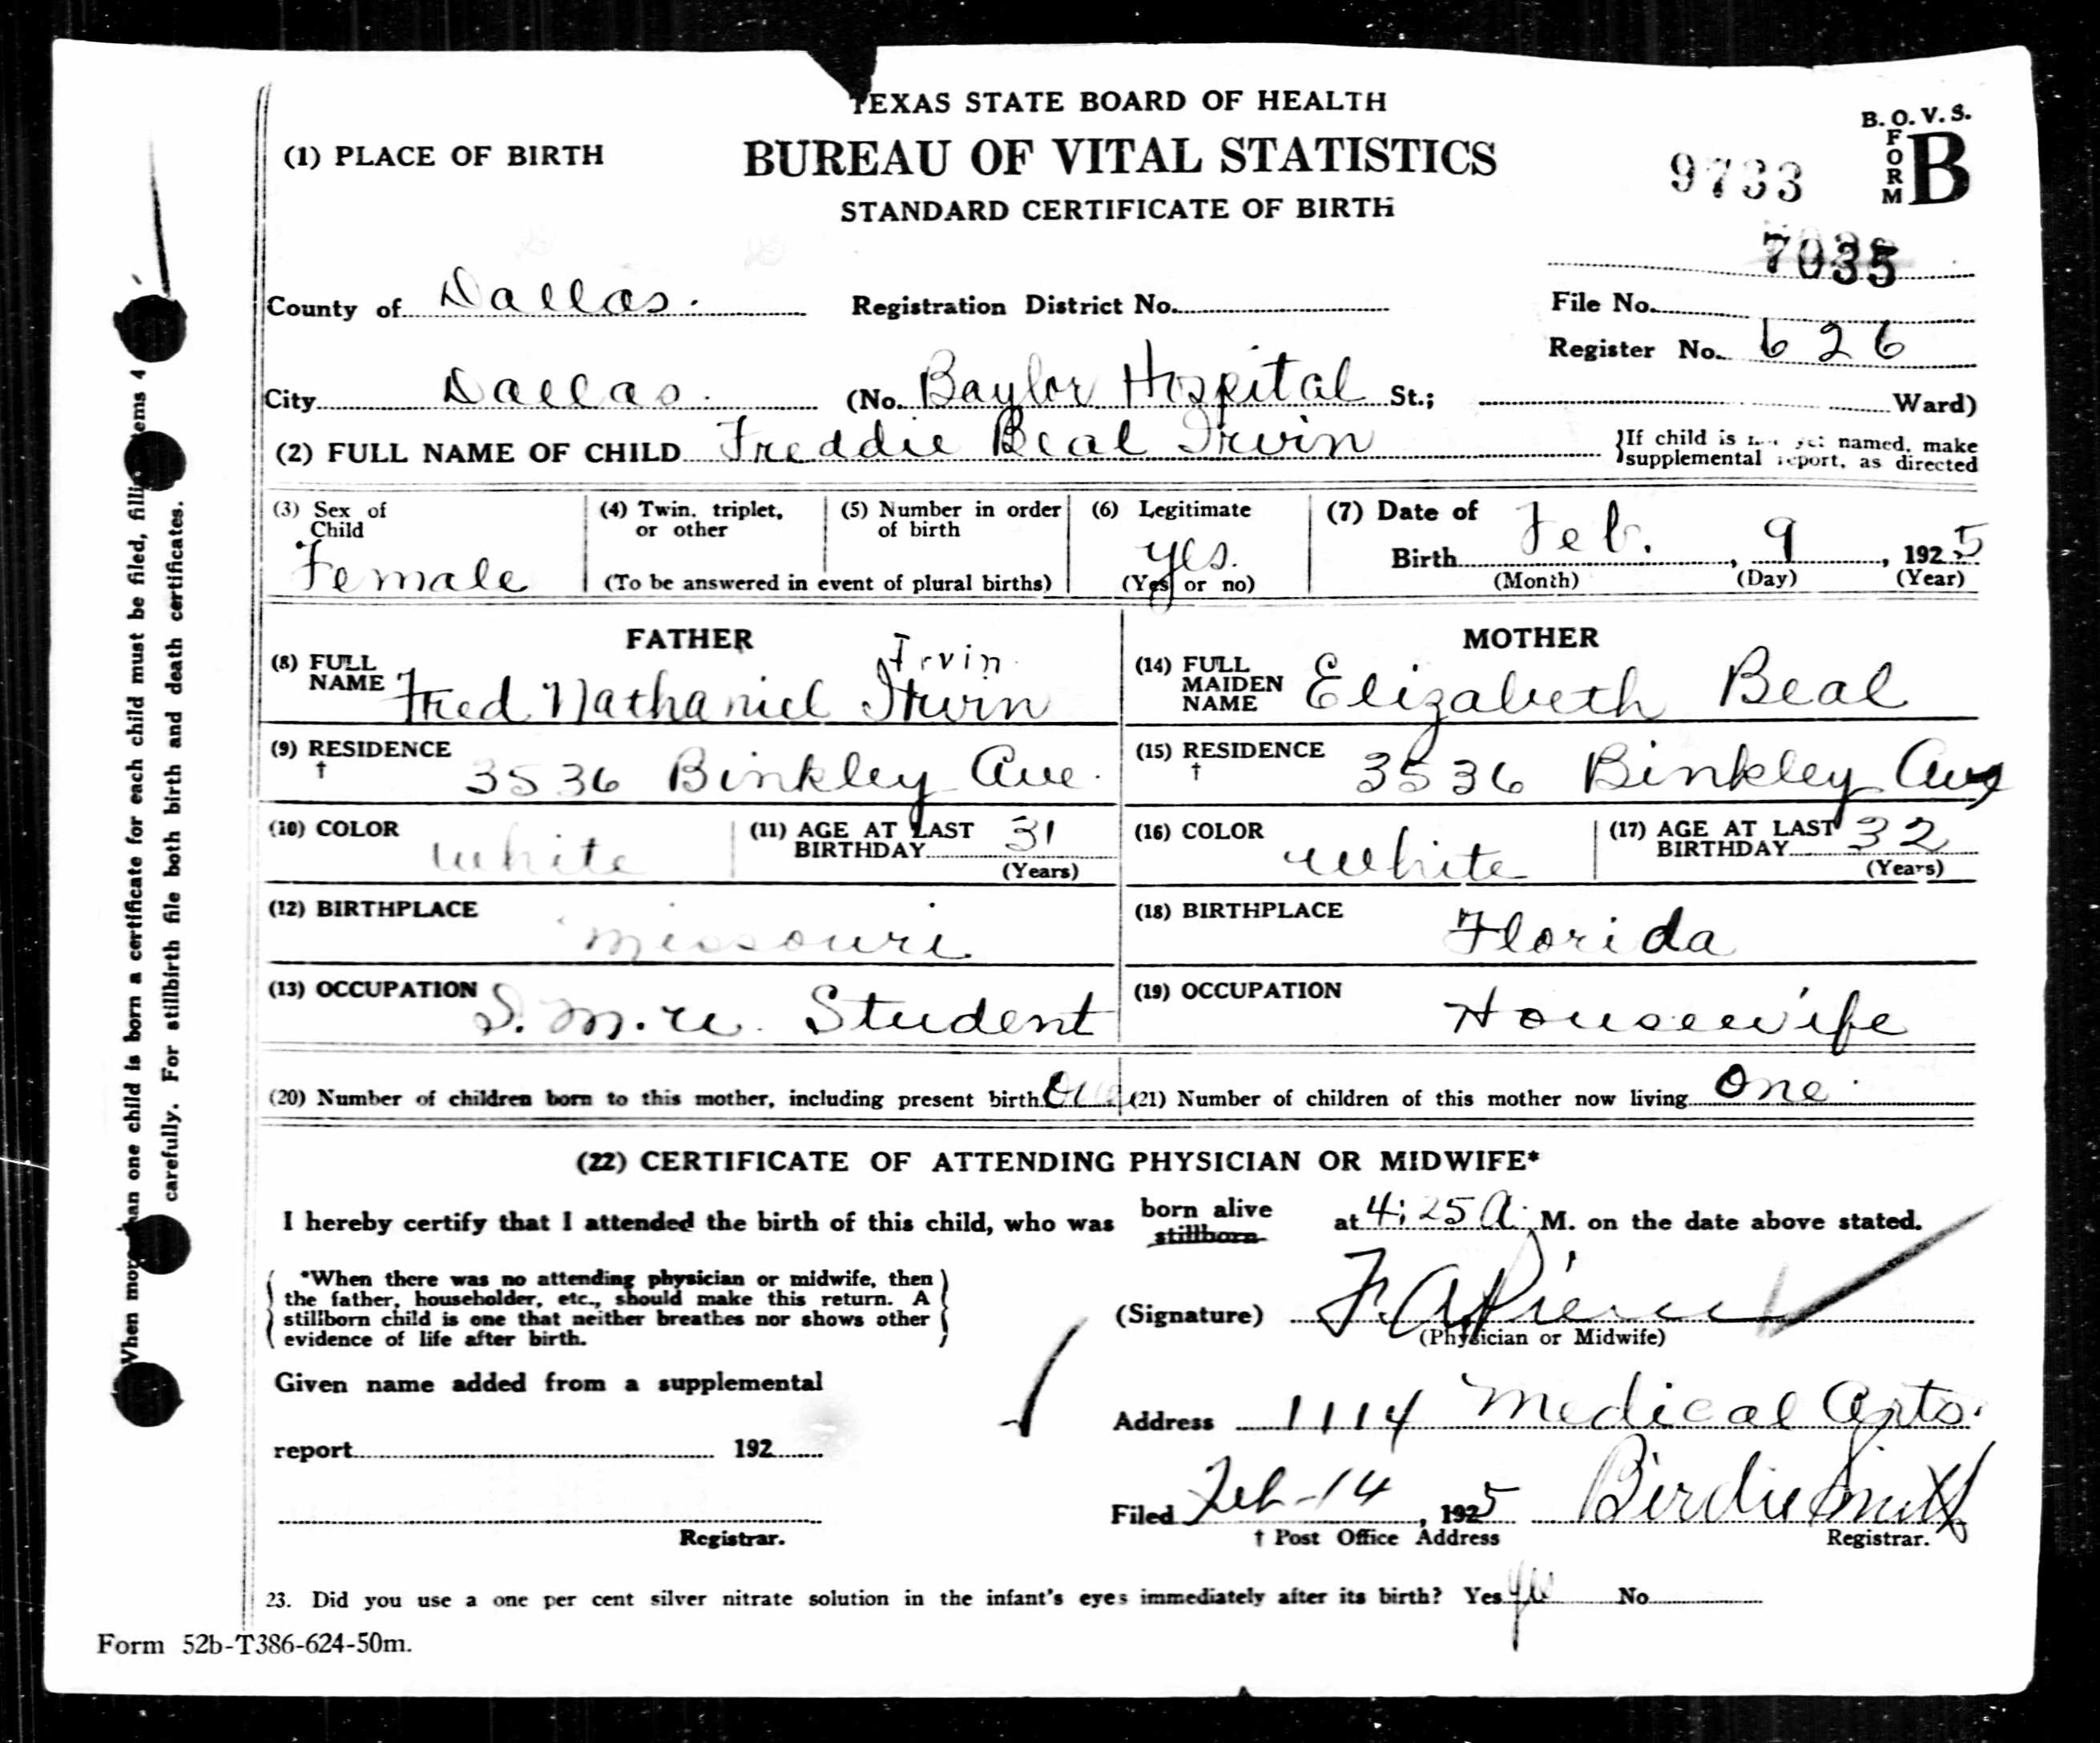 TEXAS STATE BOARD OF HEALTH
B. O. V. S.
FORM B
(1) PLACE OF BIRTH
BUREAU OF VITAL STATISTICS
9733
STANDARD CERTIFICATE OF BIRTH
7035
County of Dallas. Registration District No. File No.
Register No. 626
City Dallas. (No. Baylor Hospital St.; Ward)
(2) FULL NAME OF CHILD Freddie Beal Irvin
If child is yet named, make
supplemental report, as directed
(3) Sex of Child Female
(4) Twin, triplet, or other
(5) Number in order of birth
(To be answered in event of plural births)
(6) Legitimate yes. (Yes or no)
(7) Date of Birth Feb. 9, 1925
(Month) (Day) (Year)
FATHER
(8) FULL NAME Fred Nathaniel Irvin
Irvin
(9) RESIDENCE † 3536 Binkley Ave.
(10) COLOR White
(11) AGE AT LAST BIRTHDAY 31 (Years)
(12) BIRTHPLACE Missouri
(13) OCCUPATION S.M.U. Student
MOTHER
(14) FULL MAIDEN NAME Elizabeth Beal
(15) RESIDENCE † 3536 Binkley Ave
(16) COLOR White
(17) AGE AT LAST BIRTHDAY 32 (Years)
(18) BIRTHPLACE Florida
(19) OCCUPATION Housewife
(20) Number of children born to this mother, including present birth One
(21) Number of children of this mother now living One
(22) CERTIFICATE OF ATTENDING PHYSICIAN OR MIDWIFE*
I hereby certify that I attended the birth of this child, who was born alive stillborn at 4:25 A. M. on the date above stated.
*When there was no attending physician or midwife, then
the father, householder, etc., should make this return. A
stillborn child is one that neither breathes nor shows other
evidence of life after birth.
(Signature) F. A. Pierce
(Physician or Midwife)
Given name added from a supplemental
report 192
Registrar.
Address 1114 Medical Arts.
Filed Feb-14, 1925 Birdie Smith
† Post Office Address Registrar.
23. Did you use a one per cent silver nitrate solution in the infant's eyes immediately after its birth? Yes yes No
Form 52b-T386-624-50m.
When more than one child is born a certificate for each child must be filed, items 4
carefully. For stillbirth file both birth and death certificates.